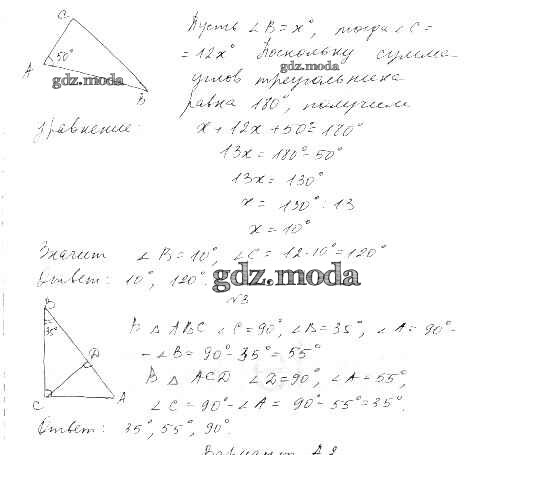 C
50°
A
B
Пусть ∠B = x°, тогда ∠C =
= 12x° Поскольку сумма
gdz.moda
gdz.moda
углов треугольника
равна 180°, получим
уравнение:
x + 12x + 50° = 180°
13x = 180° - 50°
13x = 130°
x = 130° : 13
x = 10°
Значит ∠B = 10°, ∠C = 12·10° = 120°
Ответ: 10°, 120°.
gdz.moda
N3
B
35°
D
C
A
В △ABC ∠C = 90°, ∠B = 35°, ∠A = 90° -
- ∠B = 90° - 35° = 55°
В △ACD ∠D = 90°, ∠A = 55°,
∠C = 90° - ∠A = 90° - 55° = 35°.
Ответ: 35°, 55°, 90°.
Вариант